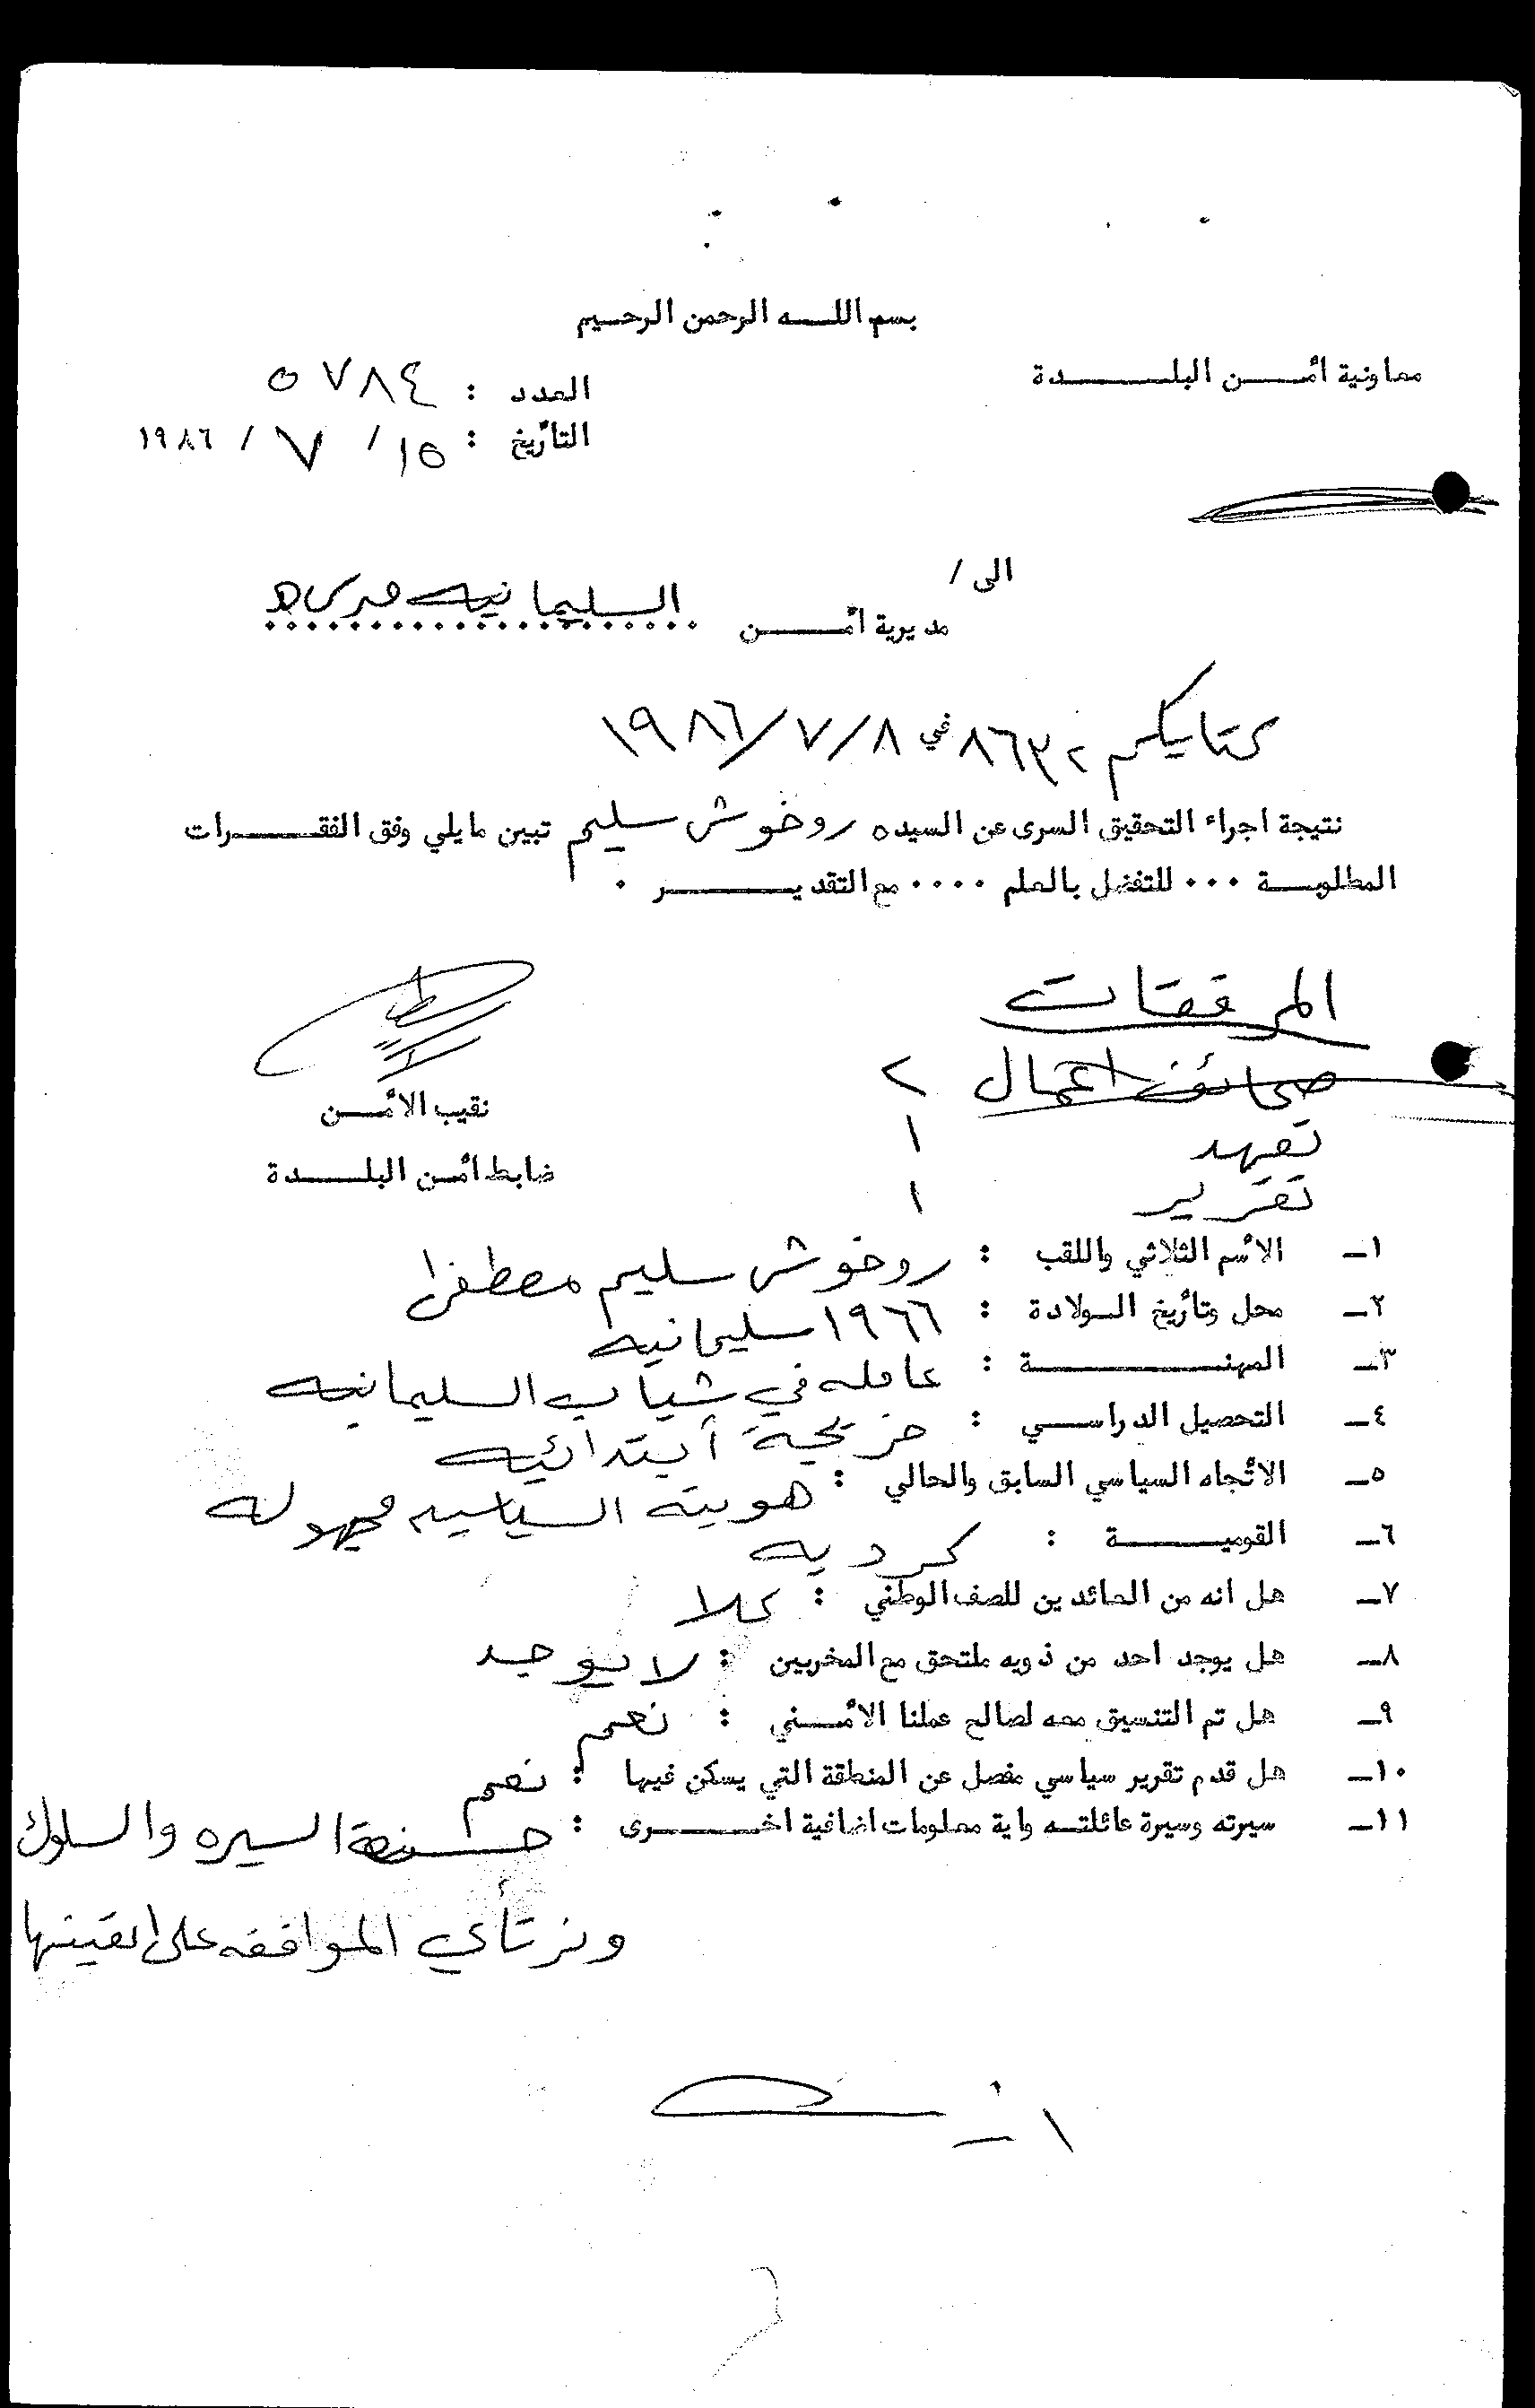 بسم اللـــه الرحمن الرحـيم
معاونية أمـــن البلـــــدة
العدد : ٥٧٨٤
التأريخ : ١٥ / ٧ / ١٩٨٦
الى /
مديرية أمــــن السليمانيه
كتابكم ٨٦٣٢ في ٨/٧/١٩٨٦
نتيجة اجراء التحقيق السرى عن السيده روخوش سليم تبين مايلي وفق الفقــــرات
المطلوبــة ٠٠٠ للتفضل بالعلم ٠٠٠٠ مع التقديـــــــر ٠
المرفقات
صحائف اعمال ٢
تعهد ١
تقرير ١
نقيب الأمــن
ضابط أمـن البلـــدة
١ــ الأسم الثلاثي واللقب : روخوش سليم مصطفى
٢ــ محل وتأريخ الـولادة : ١٩٦٦ سليمانيه
٣ــ المهنــــــــــة : عامله في شباب السليمانيه
٤ــ التحصيل الدراســـي : خريجة أبتدائيه
٥ــ الأتجاه السياسي السابق والحالي : هويته السياسيه مجهوله
٦ــ القوميـــــــة : كرديه
٧ــ هل انه من العائدين للصف الوطني : كلا
٨ــ هل يوجد احد من ذويه ملتحق مع المخربين : لا يوجد
٩ــ هل تم التنسيق معه لصالح عملنا الأمــني : نعم
١٠ــ هل قدم تقرير سياسي مفصل عن المنطقة التي يسكن فيها : نعم
١١ــ سيرته وسيرة عائلتــه واية معلومات اضافية اخـــــرى : حسنة السيره والسلوك
ونرتأي الموافقه على تعينها